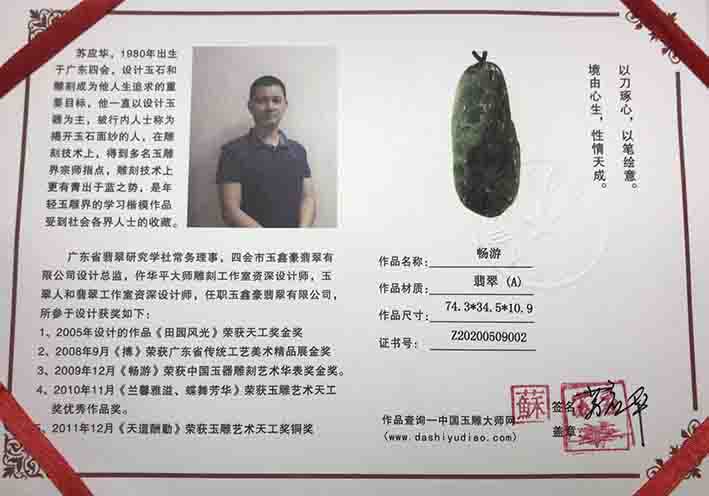 苏应华，1980年出生
于广东四会，设计玉石和
雕刻成为他人生追求的重
要目标，他一直以设计玉
器为主，被行内人士称为
揭开玉石面纱的人，在雕
刻技术上，得到多名玉雕
界宗师指点，雕刻技术上
更有青出于蓝之势，是年
轻玉雕界的学习楷模作品
受到社会各界人士的收藏。
广东省翡翠研究学社常务理事，四会市玉鑫豪翡翠有
限公司设计总监，仵华平大师雕刻工作室资深设计师，玉
翠人和翡翠工作室资深设计师，任职玉鑫豪翡翠有限公司，
所参于设计获奖如下：
1、2005年设计的作品《田园风光》荣获天工奖金奖
2、2008年9月《搏》荣获广东省传统工艺美术精品展金奖
3、2009年12月《畅游》荣获中国玉器雕刻艺术华表奖金奖。
4、2010年11月《兰馨雅溢、蝶舞芳华》荣获玉雕艺术天工
奖优秀作品奖。
5、2011年12月《天道酬勤》荣获玉雕艺术天工奖铜奖
以刀琢心，以笔绘意。
境由心生，性情天成。
作品名称：畅游
作品材质：翡翠（A）
作品尺寸：74.3*34.5*10.9
证书号：Z20200509002
作品查询一中国玉雕大师网
(www.dashiyudiao.com)
蘇
签名
盖章：